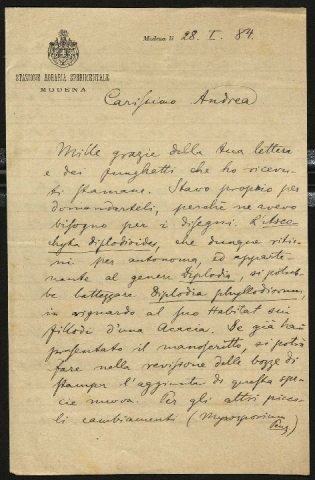 Modena li 28. I. 84.
STAZIONE AGRARIA SPERIMENTALE
MODENA
Carissimo Andrea
Mille grazie della tua lettera
e dei funghetti che ho ricevu-
ti stamane. Stavo proprio per
domandarteli, perchè ne avevo
bisogno per i disegni. L'Asco-
chyta diplodioides, che dunque ritie-
ni per autonoma, ed apparte-
nente al genere Diplodia, si potreb-
be battezzare Diplodia phyllodiorum,
in riguardo al suo habitat sui
fillodi d'una Acacia. Se già hai
presentato il manoscritto, si potrà
fare nella revisione delle bozze di
stampa l'aggiunta di questa spe-
cie nuova. Per gli altri picco-
li cambiamenti (Myxosporium